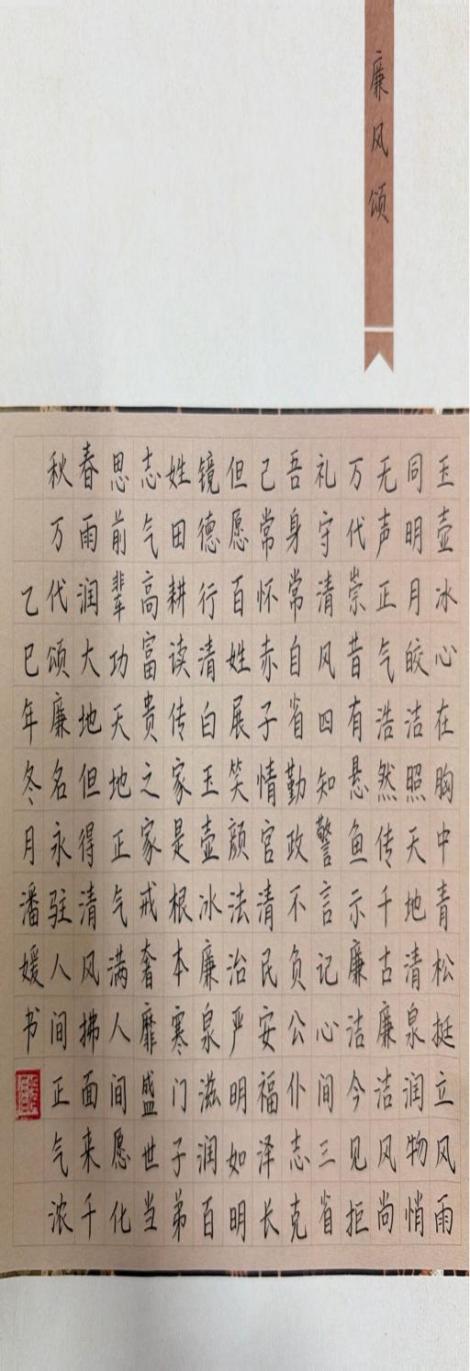 廉风颂
玉壶冰心在胸中青松挺立风雨
同明月皎洁照天地清泉润物悄
无声正气浩然传千古廉洁风尚
万代崇昔有悬鱼示廉洁今见拒
礼守清风四知警言记心间三省
吾身常自省勤政不负公仆志克
己常怀赤子情官清民安福泽长
但愿百姓展笑颜法治严明如明
镜德行清白玉壶冰廉泉滋润百
姓田耕读传家是根本寒门子弟
志气高富贵之家戒奢靡盛世当
思前辈功天地正气满人间愿化
春雨润大地但得清风拂面来千
秋万代颂廉名永驻人间正气浓
乙巳年冬月潘媛书